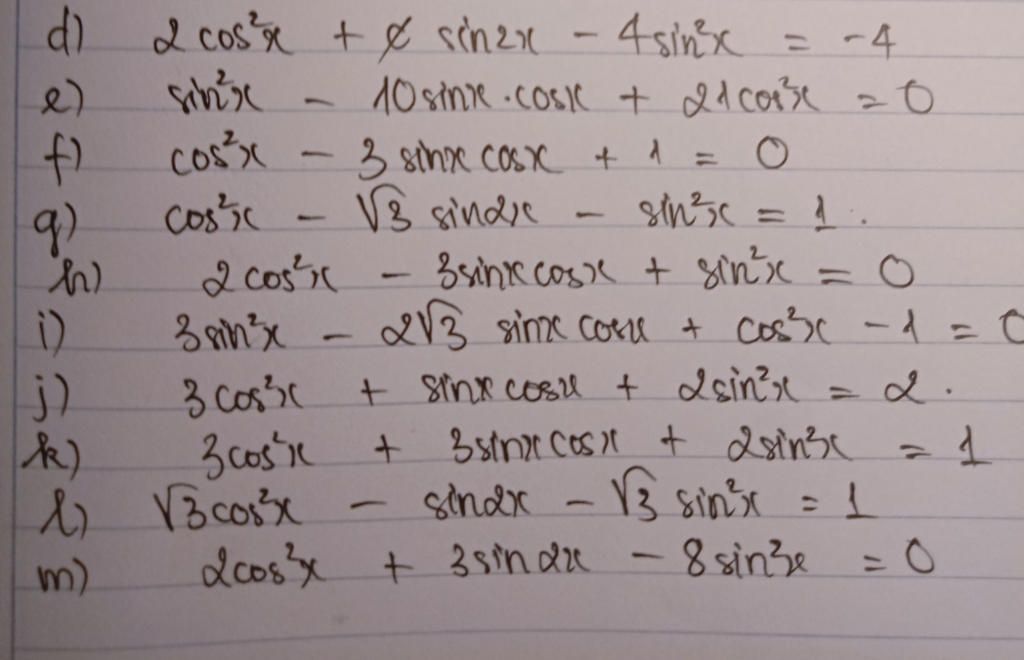 d) 2 cos²x + sin2x - 4sin²x = -4
e) sin²x - 10sinx.cosx + 21cos²x = 0
f) cos²x - 3 sinx cosx + 1 = 0
g) cos²x - √3 sin2x - sin²x = 1.
h) 2cos²x - 3sinx cosx + sin²x = 0
i) 3sin²x - 2√3 sinx cosx + cos²x - 1 = 0
j) 3cos²x + sinx cosx + 2sin²x = 2.
k) 3cos²x + 3sinx cosx + 2sin²x = 1
l) √3cos²x - sin2x - √3 sin²x = 1
m) 2cos²x + 3sin2x - 8sin²x = 0